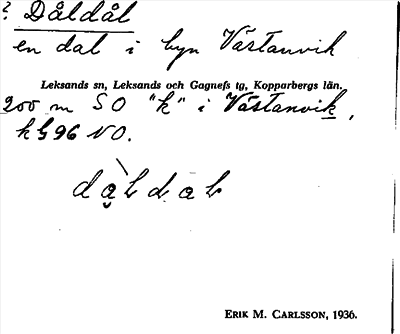 ? Dåldål
en dal i byn Västanvik
Leksands sn, Leksands och Gagnefs tg, Kopparbergs län.
200 m SO "k" i Västanvik,
kb 96 NO.
ERIK M. CARLSSON, 1936.